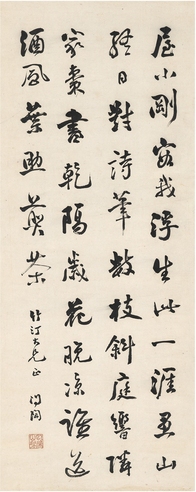 屋小剛容我浮生此一涯山
終日對詩筆數枝斜庭響隣
家棗書乾隔歲花晚涼誰送
酒風葉助煎茶
竹汀大兄正